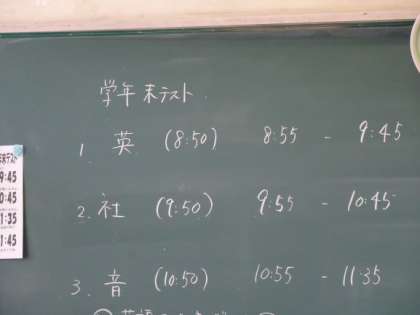 学年末テスト
1. 英 (8:50) 8:55 - 9:45
2. 社 (9:50) 9:55 - 10:45
3. 音 (10:50) 10:55 - 11:35
末テスト
9:45
0:45
1:35
1:45